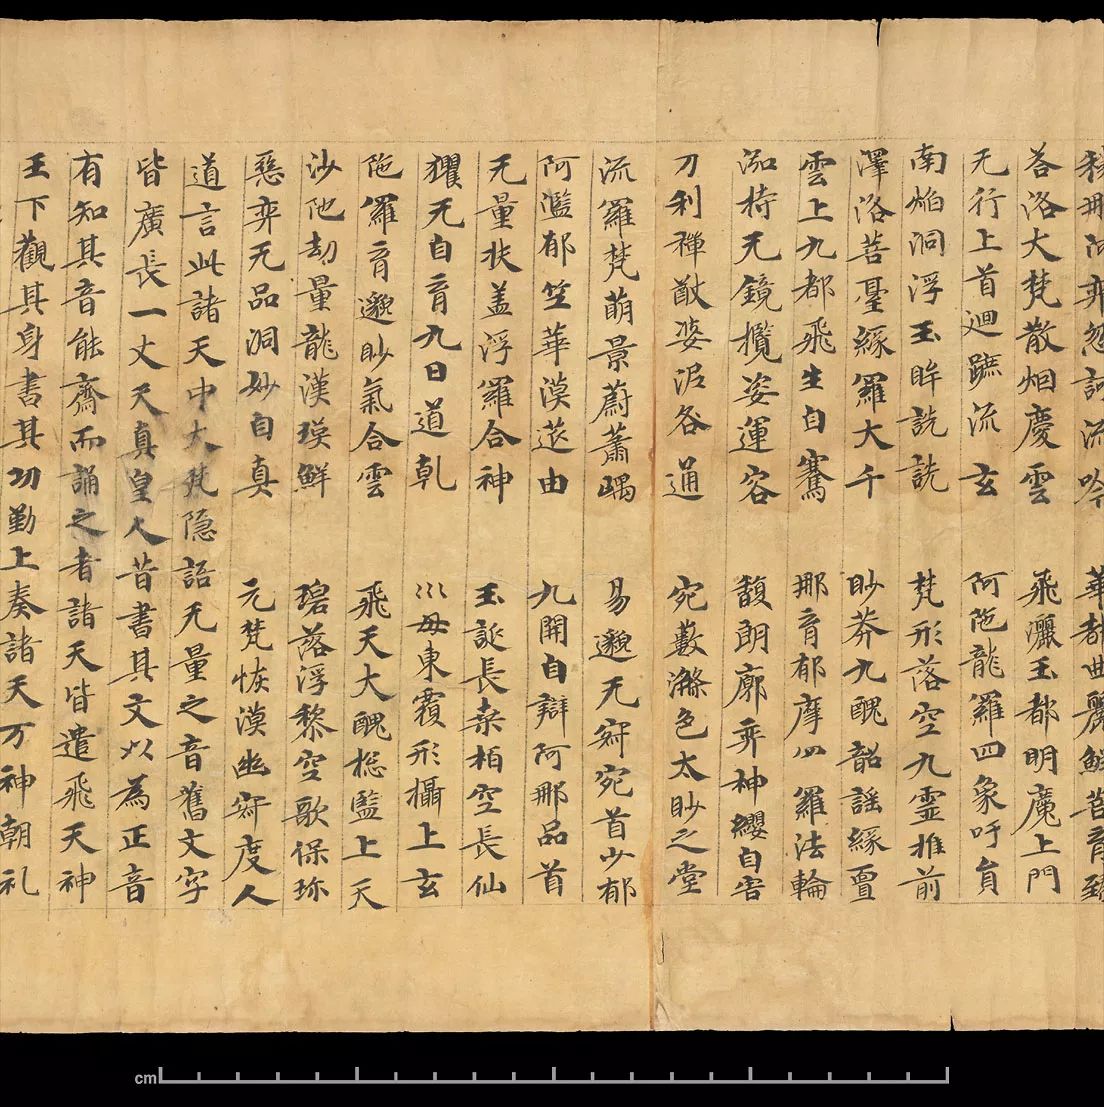 那阿弈忽訶流吟　華都曲麗鮮菩育臻
荅洛大梵散烟慶雲　飛灑玉都明魔上門
无行上首迴蹠流玄　阿陁龍羅四象吁員
南焰洞浮玉眸詵詵　梵形落空九靈推前
澤洛菩臺緣羅大千　眇莽九醜韶謠緣亶
雲上九都飛生自騫　那育郁摩羅法輪
泓持无鏡攬姿運容　馥朗廓弈神纓自宮
刀利禪猷婆泥各通　宛藪滌色太眇之堂
流羅梵萌景蔚蕭嵎　易邈无寂宛首少郁
阿濫郁竺華漠莚由　九開自辯阿那品首
无量扶盖浮羅合神　玉誕長桒柏空長仙
玃无自育九日道乹　巛母東覆形攝上玄
陁羅育邈眇氣合雲　飛天大醜揔監上天
沙陁劫量龍漢瑛鮮　碧落浮黎空歌保珎
惡弈无品洞妙自真　元梵恢漠幽寂度人
道言此諸天中大梵隱語无量之音舊文字
皆廣長一丈天真皇人昔書其文以為正音
有知其音能齋而誦之者諸天皆遣飛天神
王下觀其身書其功勤上奏諸天万神朝礼
cm